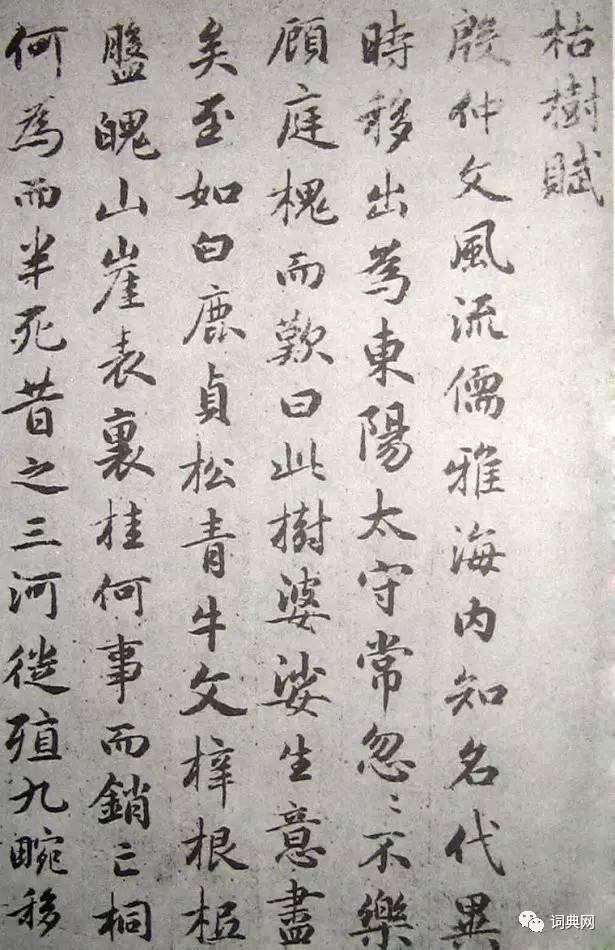 枯樹賦
殷仲文風流儒雅海内知名代異
時移出為東陽太守常忽〻不樂
顧庭槐而歎曰此樹婆娑生意盡
矣至如白鹿貞松青牛文梓根柢
盤魄山崖表裏桂何事而銷亡桐
何為而半死昔之三河徙殖九畹移
词典网